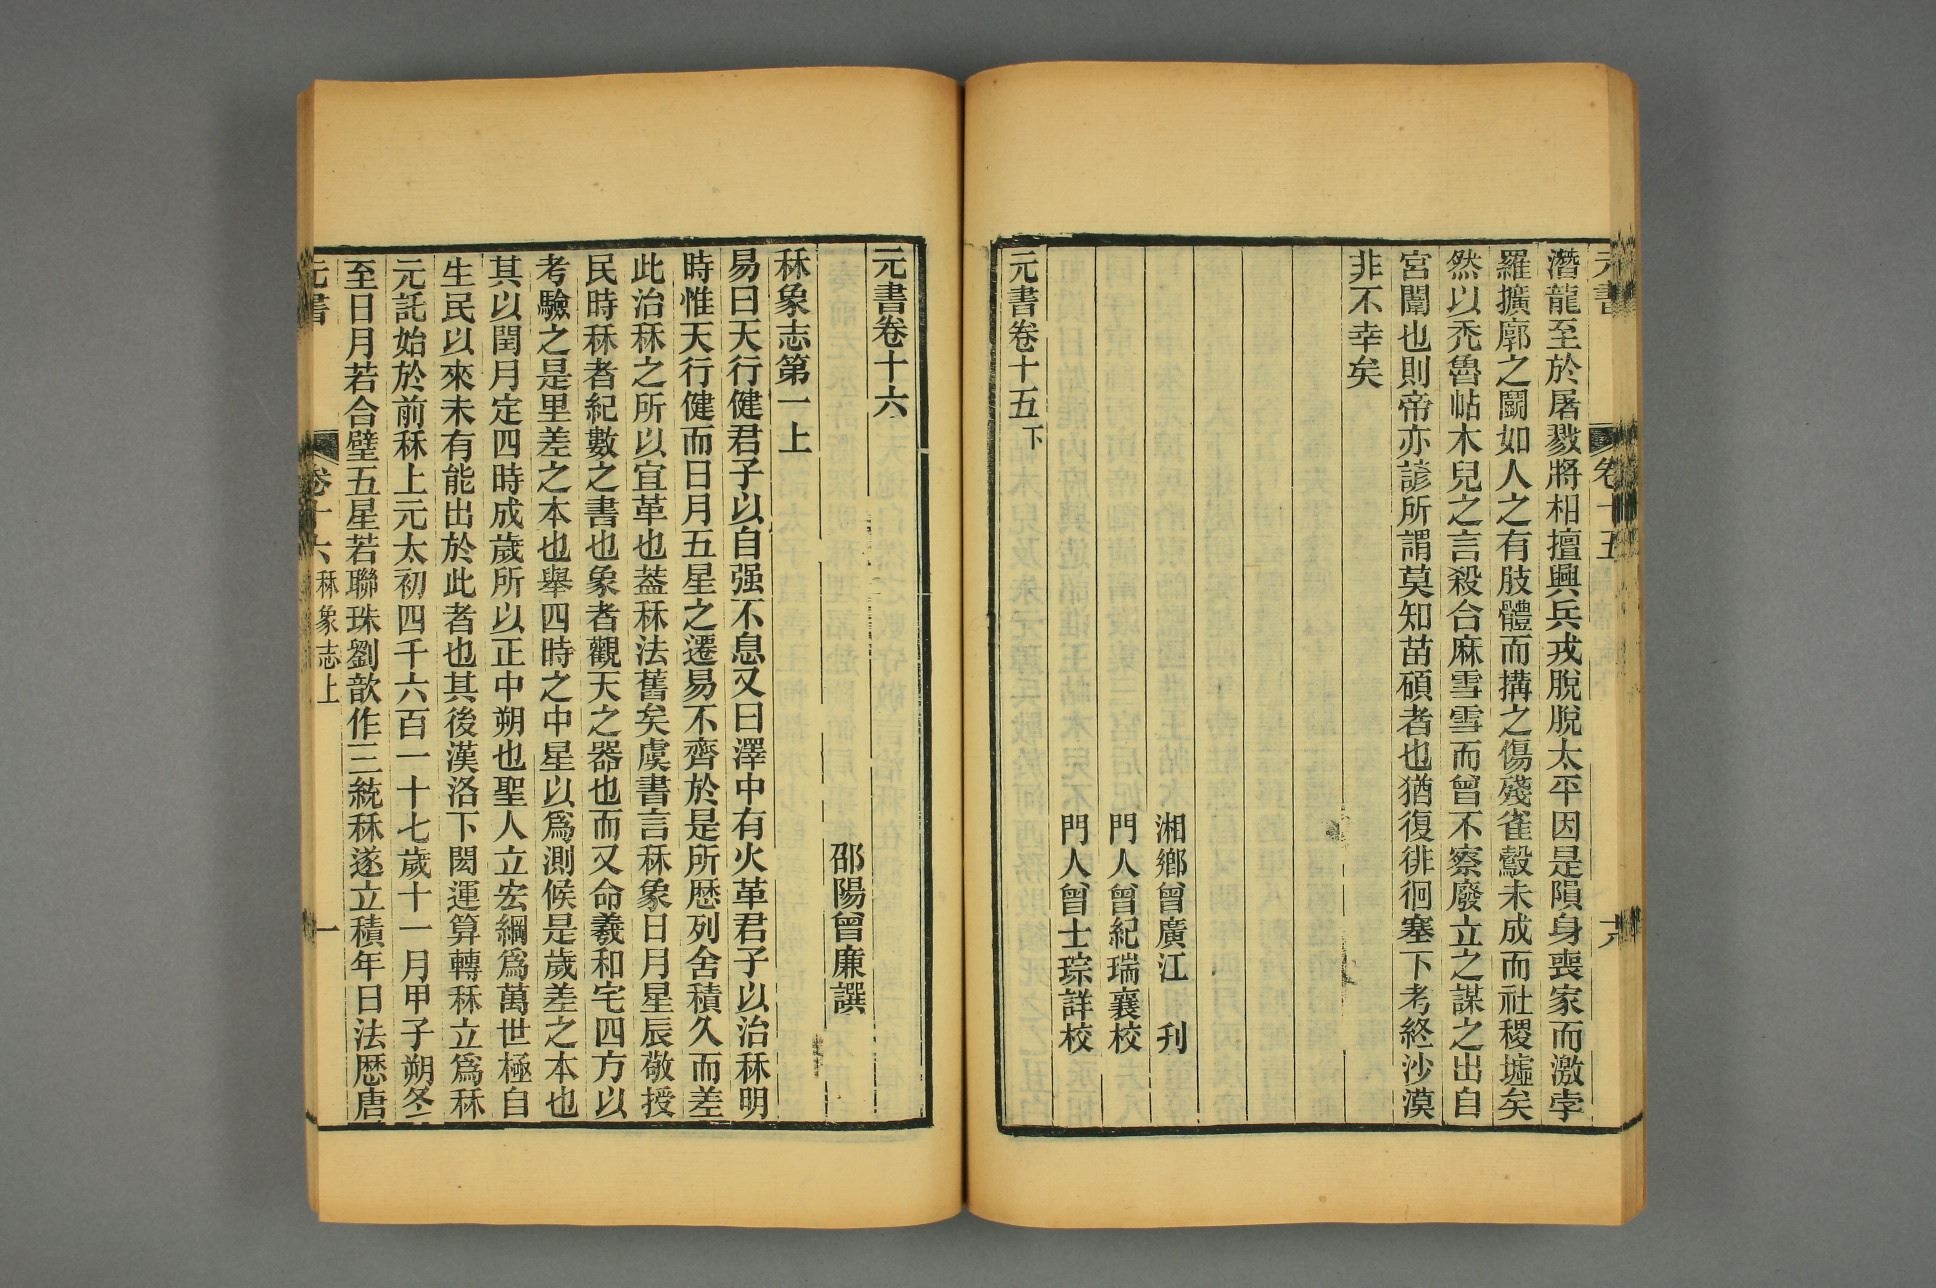 元書
卷十五
六
潛龍至於屠戮將相擅興兵戎脫脫太平因是隕身喪家而激孛
羅擴廓之鬭如人之有肢體而搆之傷殘雀鷇未成而社稷墟矣
然以禿魯帖木兒之言殺合麻雪雪而曾不察廢立之謀之出自
宮闈也則帝亦諺所謂莫知苗碩者也猶復徘徊塞下考終沙漠
非不幸矣
湘鄉曾廣江 刋
門人曾紀瑞襄校
門人曾士琮詳校
元書卷十五下
元書卷十六
邵陽曾廉譔
秝象志第一上
易曰天行健君子以自强不息又曰澤中有火革君子以治秝明
時惟天行健而日月五星之遷易不齊於是所歷列舍積久而差
此治秝之所以宜革也蓋秝法舊矣虞書言秝象日月星辰敬授
民時秝者紀數之書也象者觀天之器也而又命羲和宅四方以
考驗之是里差之本也舉四時之中星以爲測候是歲差之本也
其以閏月定四時成歲所以正中朔也聖人立宏綱爲萬世極自
生民以來未有能出於此者也其後漢洛下閎運算轉秝立爲秝
元託始於前秝上元太初四千六百一十七歲十一月甲子朔冬
至日月若合璧五星若聯珠劉歆作三統秝遂立積年日法歷唐
元書
卷十六秝象志上
一